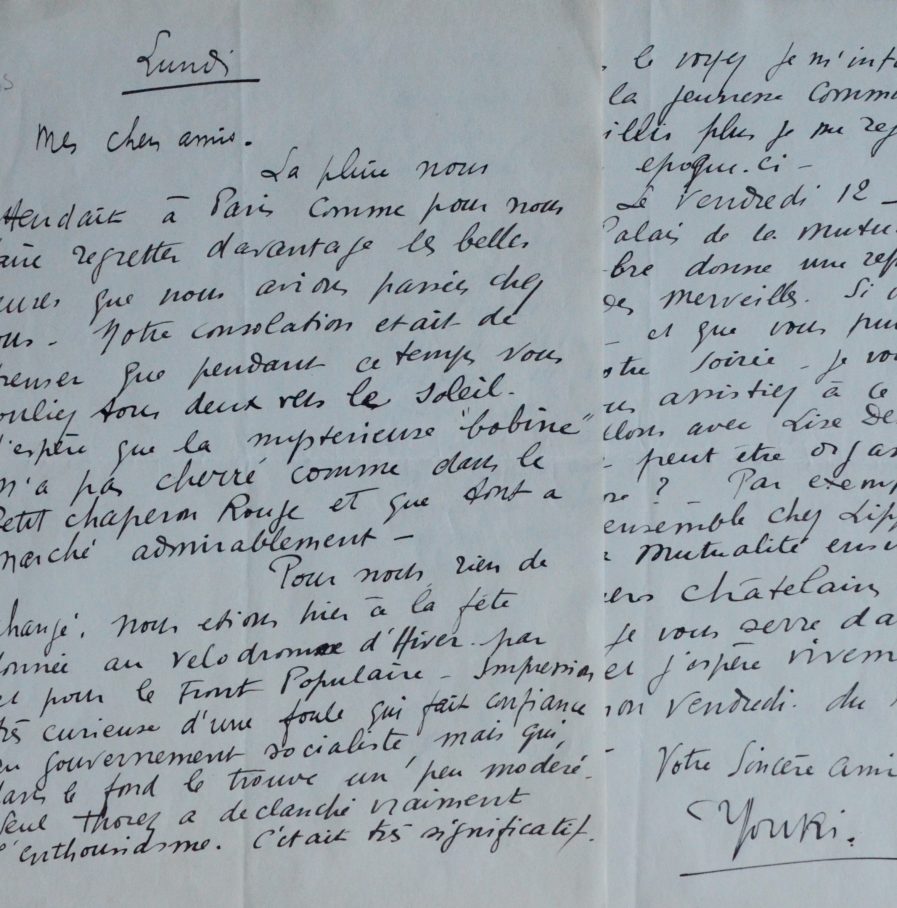 Lundi
Mes chers amis.
La pluie nous
attendait à Paris comme pour nous
faire regretter davantage les belles
heures que nous avions passées chez
vous - Notre consolation etait de
penser que pendant ce temps vous
rouliez tous deux vers le soleil.
J'espère que la mysterieuse "bobine"
n'a pas cherré comme dans le
Petit chaperon Rouge et que tout a
marché admirablement -
Pour nous, rien de
changé. Nous etions hier à la fête
donnée au Velodrome d'Hiver par
et pour le Front Populaire - Impression
très curieuse d'une foule qui fait confiance
au gouvernement socialiste, mais qui,
dans le fond le trouve un peu modéré.
Seul Thorez a declanché vraiment
l'enthousiasme. C'était très significatif.
le voyez je m'inf
la jeunesse Commu
illis plus je me reg
epoque-ci -
Le Vendredi 12 -
Palais de la Mutu
bre donne une rep
des Merveilles. Si
- et que vous puis
otre Soirée - je vo
assistiez à ce
lons avec Lise De
- peut etre orgas
re ? - Par exemp
ensemble chez Lipp
Mutualité ensu
ers châtelains
je vous serre da
et j'espère vivem
non Vendredi. du
Votre Sincère amie
Youki.